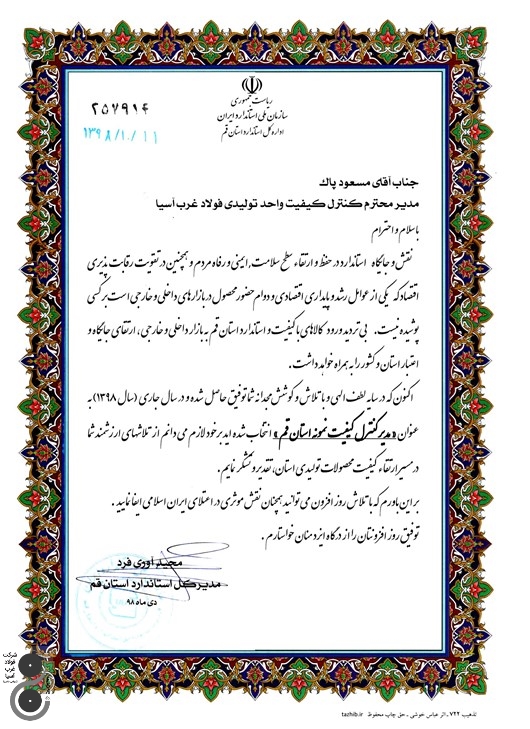 ریاست جمهوری
سازمان ملی استاندارد ایران
اداره کل استاندارد استان قم
۲۵۷۹۱۴
۱۳۹۸/۱۰/۱۱
جناب آقای مسعود پاک
مدیر محترم کنترل کیفیت واحد تولیدی فولاد غرب آسیا
با سلام و احترام
نقش و جایگاه استاندارد در حفظ و ارتقاء سطح سلامت، ایمنی و رفاه مردم و همچنین در تقویت رقابت پذیری
اقتصاد که یکی از عوامل رشد و پایداری اقتصادی و دوام حضور محصول در بازارهای داخلی و خارجی است بر کسی
پوشیده نیست. بی تردید ورود کالاهای با کیفیت و استاندارد استان قم به بازار داخلی و خارجی، ارتقای جایگاه و
اعتبار استان و کشور را به همراه خواهد داشت.
اکنون که در سایه لطف الهی و با تلاش و کوشش مجدانه شما توفیق حاصل شده و در سال جاری (سال ۱۳۹۸) به
عنوان «مدیر کنترل کیفیت نمونه استان قم» انتخاب شده اید بر خود لازم می دانم از تلاشهای ارزشمند شما
در مسیر ارتقاء کیفیت محصولات تولیدی استان، تقدیر و تشکر نمایم.
بر این باورم که با تلاش روز افزون می توانید همچنان نقش موثری در اعتلای ایران اسلامی ایفا نمایید.
توفیق روز افزونتان را از درگاه ایزد منان خواستارم.
مجید آوری فرد
مدیر کل استاندارد استان قم
دی ماه ۹۸
شرکت
فولاد
غرب
آسیا
تذهیب ۷۲۲ ـ اثر عباس خوشی ـ حق چاپ محفوظ tazhib.ir